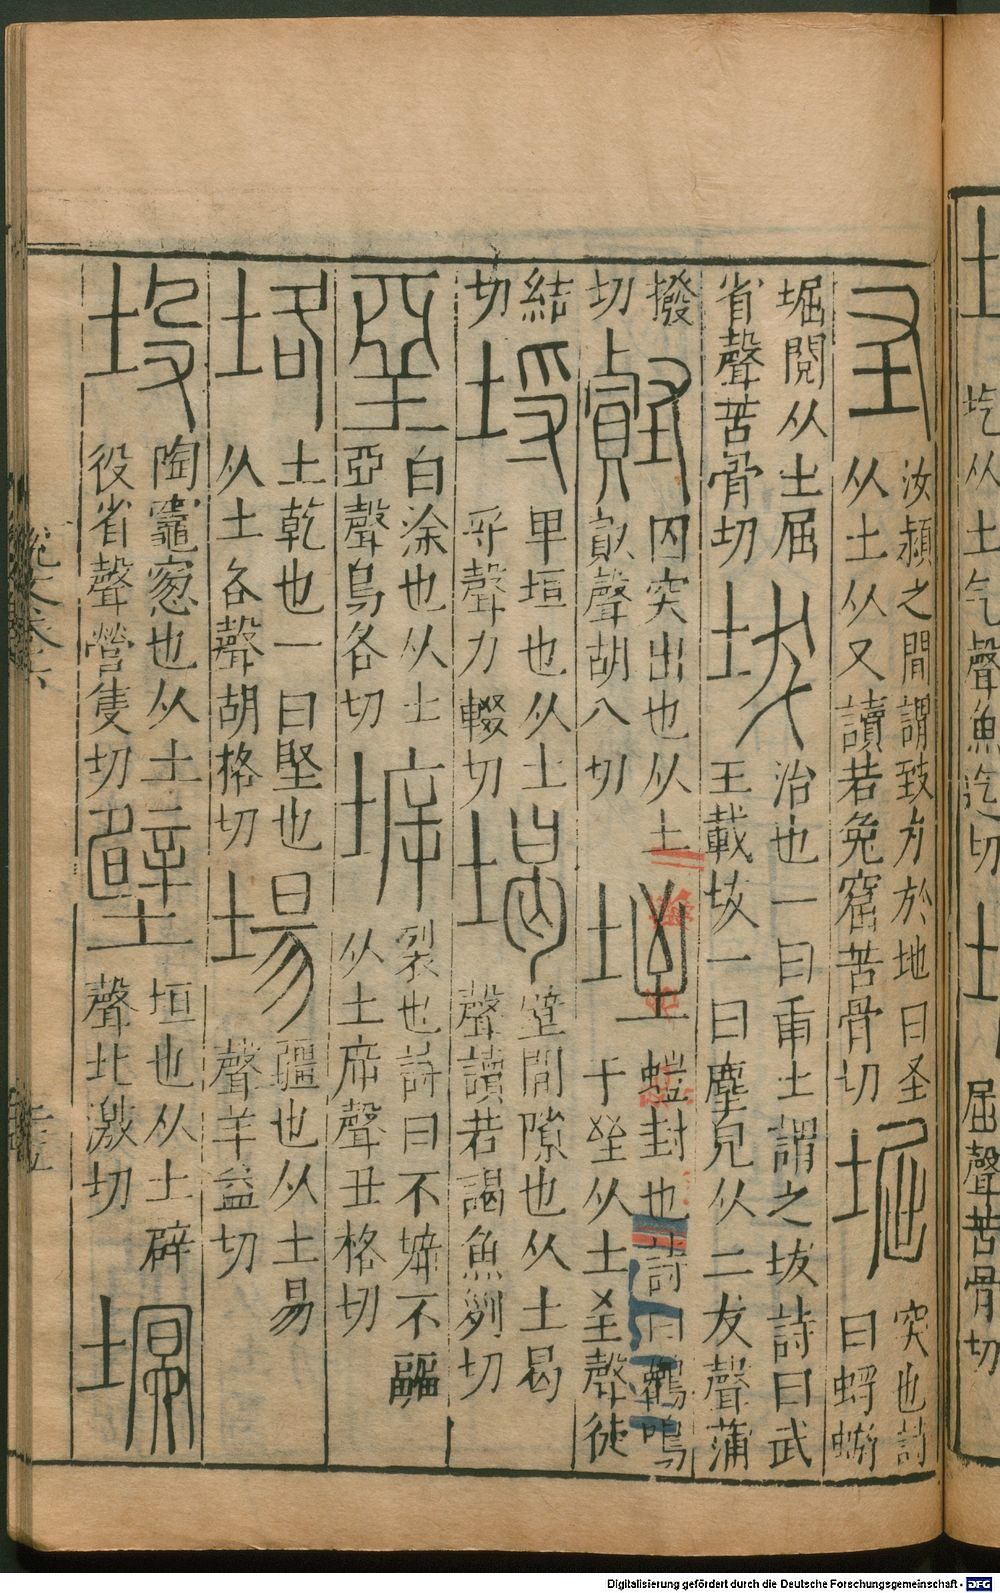 圣
汝潁之間謂致力於地曰圣
从土从又讀若兔窟苦骨切
堀
突也詩
曰蜉蝣
堀閱从土屈
省聲苦骨切
坺
治也一曰臿土謂之坺詩曰武
王載坺一曰塵皃从土犮聲蒲
撥
切
囚突出也从土
㕡聲胡八切
垤
螘封也詩曰鸛鳴
于垤从土至聲徒
結
切
埒
卑垣也从土
寽聲力輟切
堨
壁間隙也从土曷
聲讀若謁魚列切
堊
白涂也从土
亞聲烏各切
㡿
裂也詩曰不㙤不疈
从土㡿聲丑格切
垎
土乾也一曰堅也
从土各聲胡格切
埸
疆也从土易
聲羊益切
垼
陶竈窻也从土
役省聲營隻切
壁
垣也从土辟
聲北激切
塓
說文卷六
屈聲苦骨切
圪从土气聲魚迄切
Digitalisierung gefördert durch die Deutsche Forschungsgemeinschaft - DFG